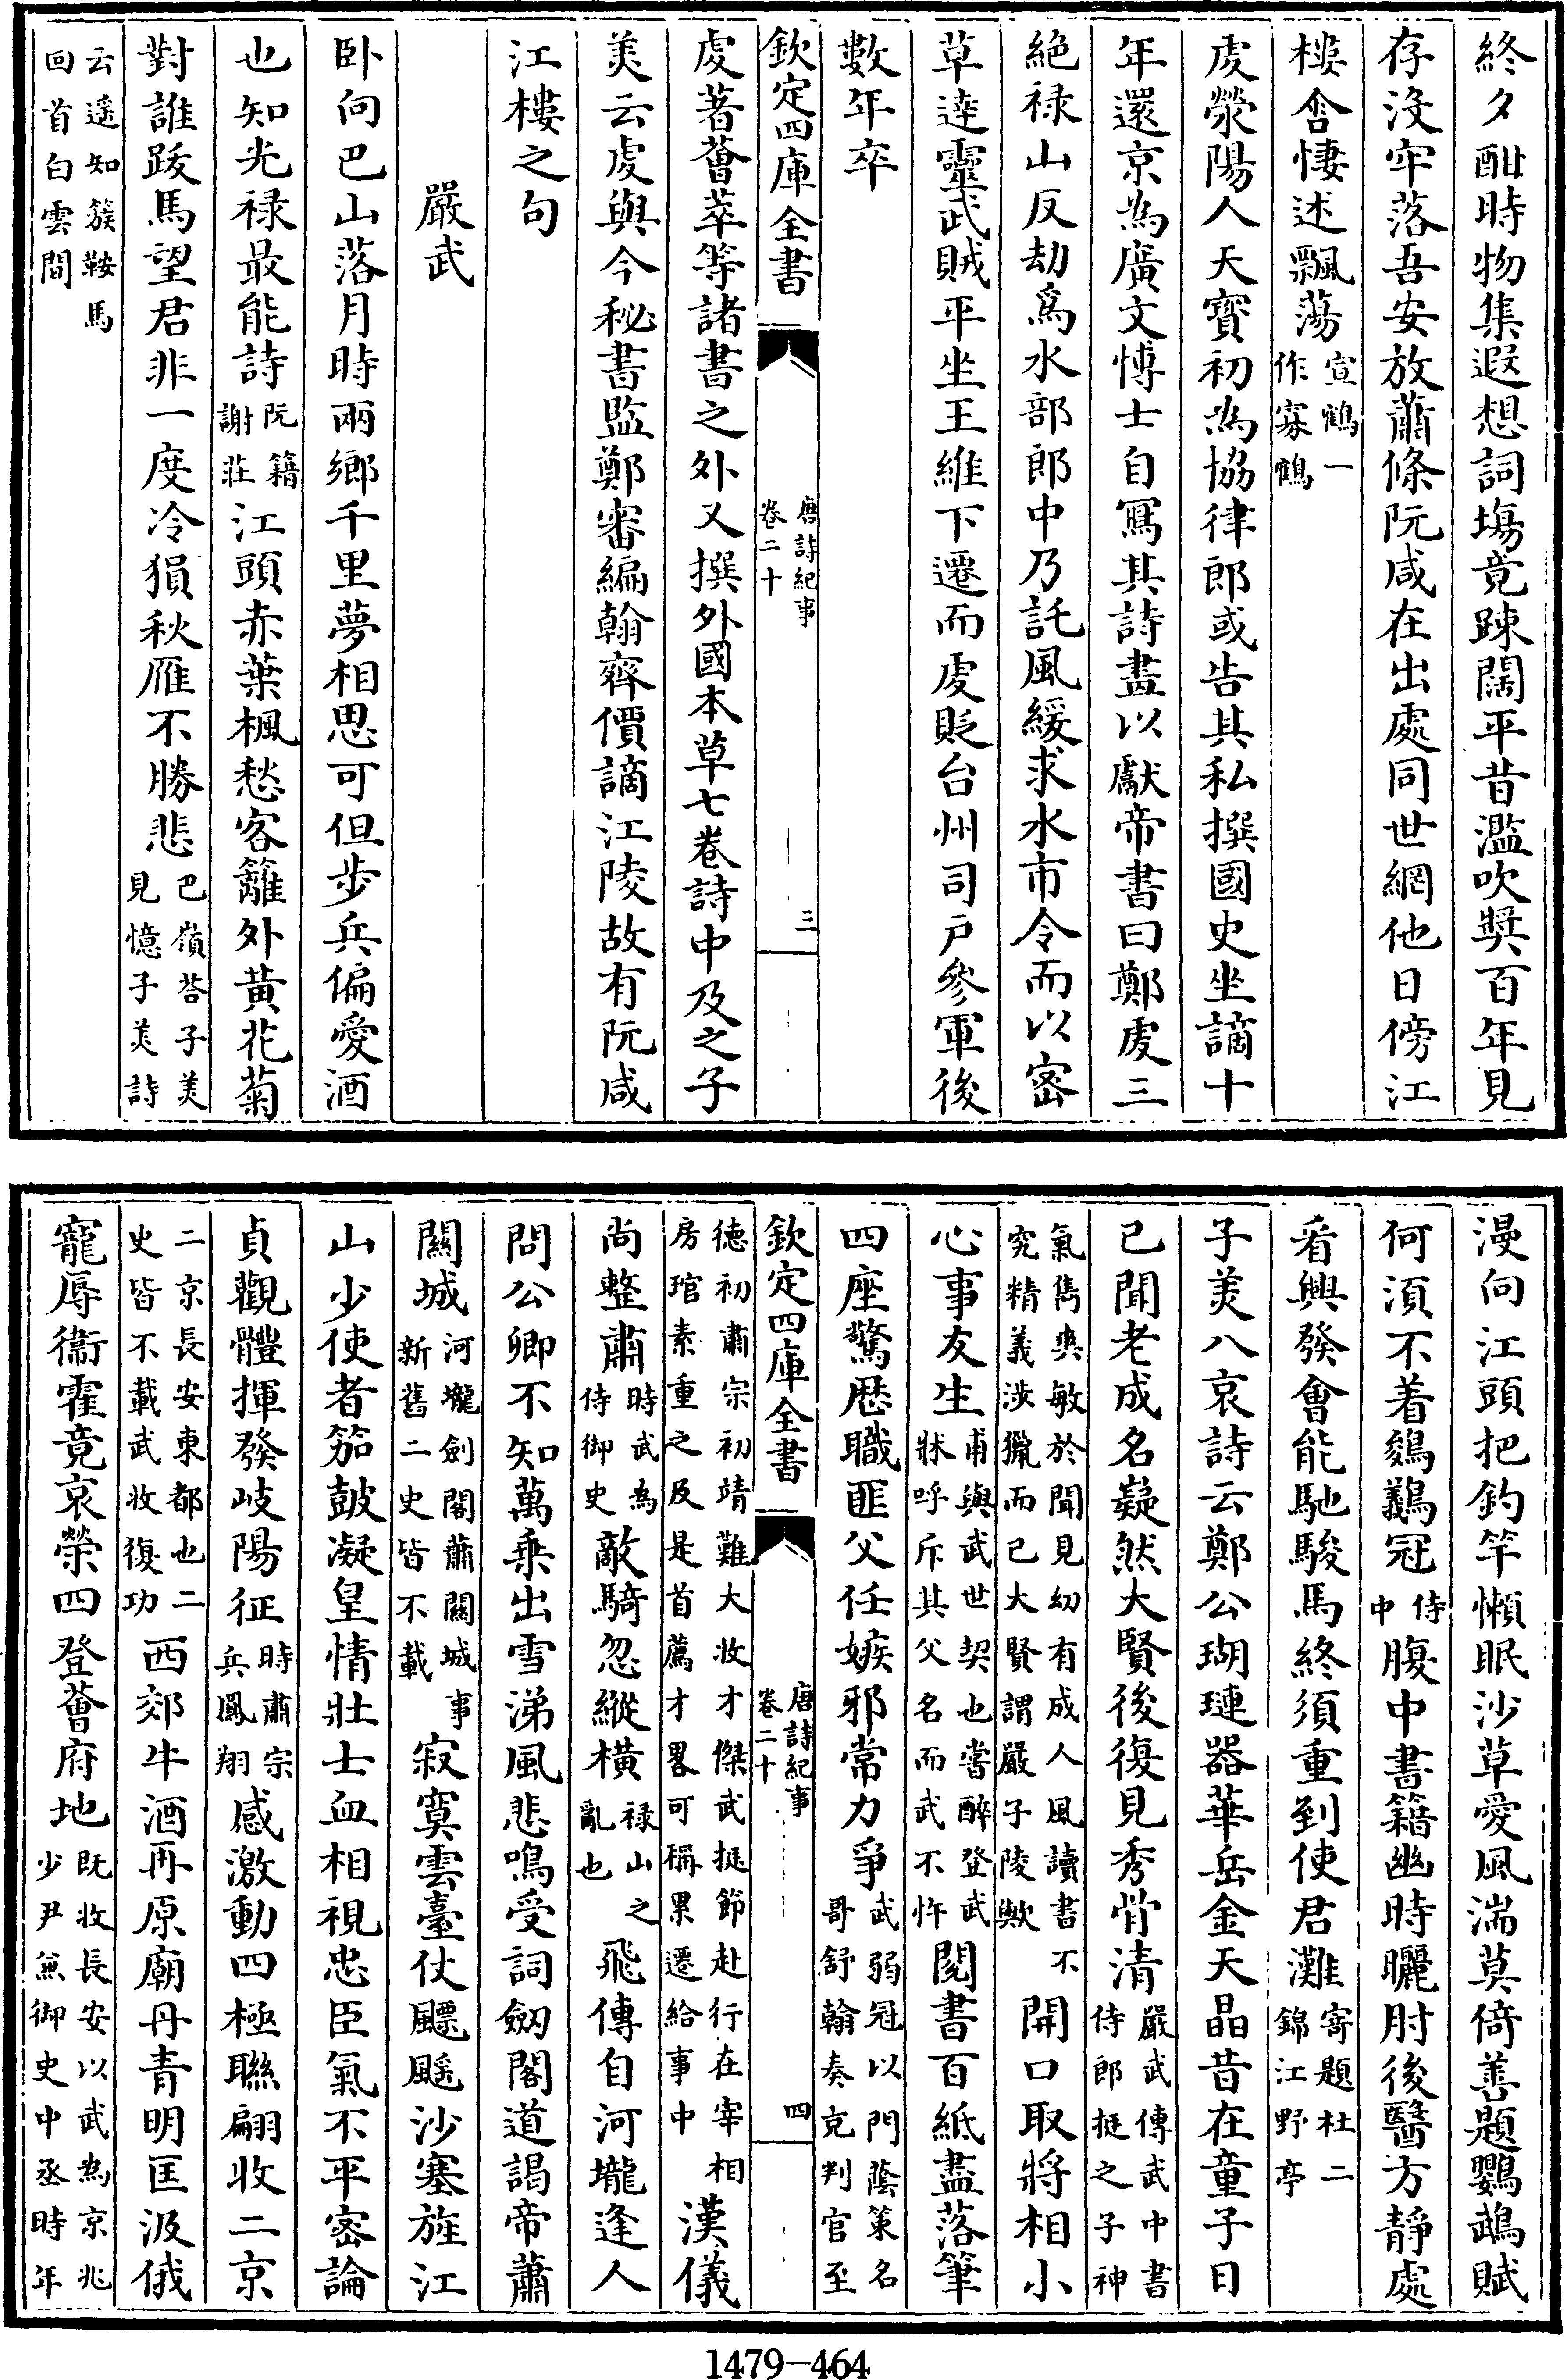 終夕酣時物集遐想詞塲竟踈闊平昔濫吹奬百年見
存沒牢落吾安放蕭條阮咸在出處同世網他日傍江
樓含悽述飄蕩宣鶴一作寡鶴
䖍滎陽人天寳初為協律郎或告其私撰國史坐謫十
年還京為廣文愽士自寫其詩畫以獻帝書曰鄭䖍三
絶禄山反劫爲水部郎中乃託風緩求水市令而以宻
草達靈武賊平坐王維下遷而䖍貶台州司戸參軍後
數年卒
欽定四庫全書
唐詩紀事
卷二十
三
䖍著薈萃等諸書之外又撰外國本草七卷詩中及之子
美云䖍與今秘書監鄭審編翰齊價謫江陵故有阮咸
江樓之句
嚴武
卧向巴山落月時兩鄉千里夢相思可但步兵偏愛酒
也知光禄最能詩阮籍謝莊江頭赤葉楓愁客籬外黄花菊
對誰跋馬望君非一度冷猿秋雁不勝悲巴嶺荅子美見憶子美詩
云遥知簇鞍馬回首白雲間
漫向江頭把釣竿懶眠沙草愛風湍莫倚善題鸚鵡賦
何須不着鵕鸃冠侍中腹中書籍幽時曬肘後醫方靜處
看興發會能馳駿馬終須重到使君灘寄題杜二錦江野亭
子美八哀詩云鄭公瑚璉器華岳金天晶昔在童子日
已聞老成名嶷然大賢後復見秀骨清嚴武傳武中書侍郎挺之子神
氣雋爽敏於聞見幼有成人風讀書不究精義涉獵而已大賢謂嚴子陵歟開口取將相小
心事友生甫與武世契也嘗醉登武牀呼斥其父名而武不忤閱書百紙盡落筆
四座驚歴職匪父任嫉邪常力爭武弱冠以門蔭策名哥舒翰奏克判官至
欽定四庫全書
唐詩紀事
卷二十
四
德初肅宗初靖難大收才傑武挺節赴行在宰相房琯素重之及是首薦才畧可稱累遷給事中漢儀
尚整肅時武為侍御史敵騎忽縱橫禄山之亂也飛傳自河壠逢人
問公卿不知萬乗出雪涕風悲鳴受詞劔閣道謁帝蕭
關城河壠劍閣蕭關城事新舊二史皆不載寂寞雲臺仗飃颻沙塞旌江
山少使者笳鼓凝皇情壯士血相視忠臣氣不平宻論
貞觀體揮發岐陽征時肅宗兵鳳翔感激動四極聯翩收二京
二京長安東都也二史皆不載武收復功西郊牛酒再原廟丹青明匡汲俄
寵辱衞霍竟哀榮四登薈府地既收長安以武為京兆少尹兼御史中丞時年
1479-464